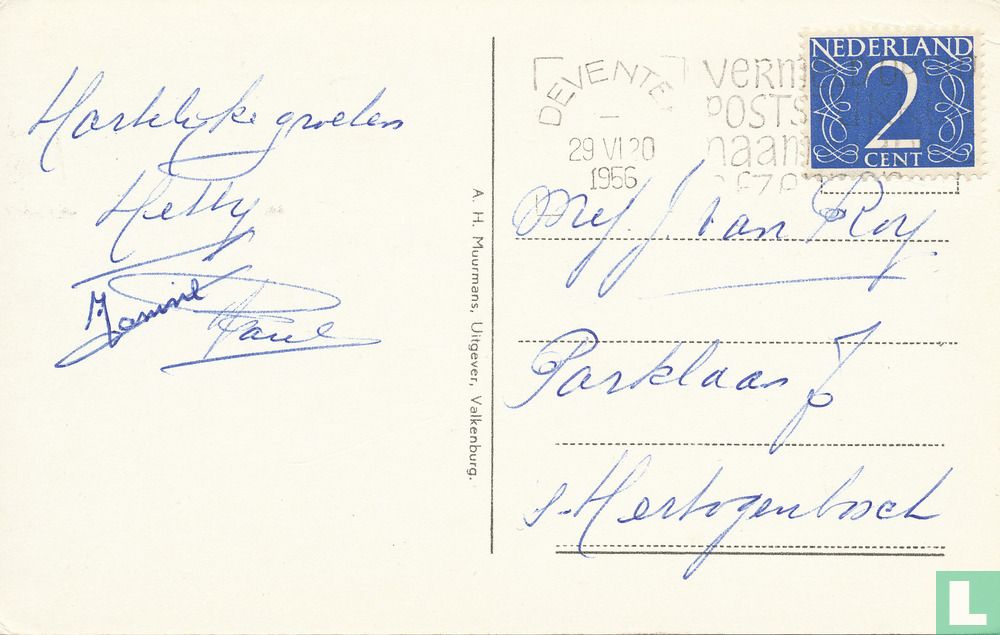 Hartelijke groeten
Hetty
Jannie
Paul
A. H. Muurmans, Uitgever, Valkenburg.
DEVENTE
29 VI 20
1956
POSTS
naam
NEDERLAND
2
CENT
Mej. J. van Roy.
Parklaan 7
s-Hertogenbosch
L